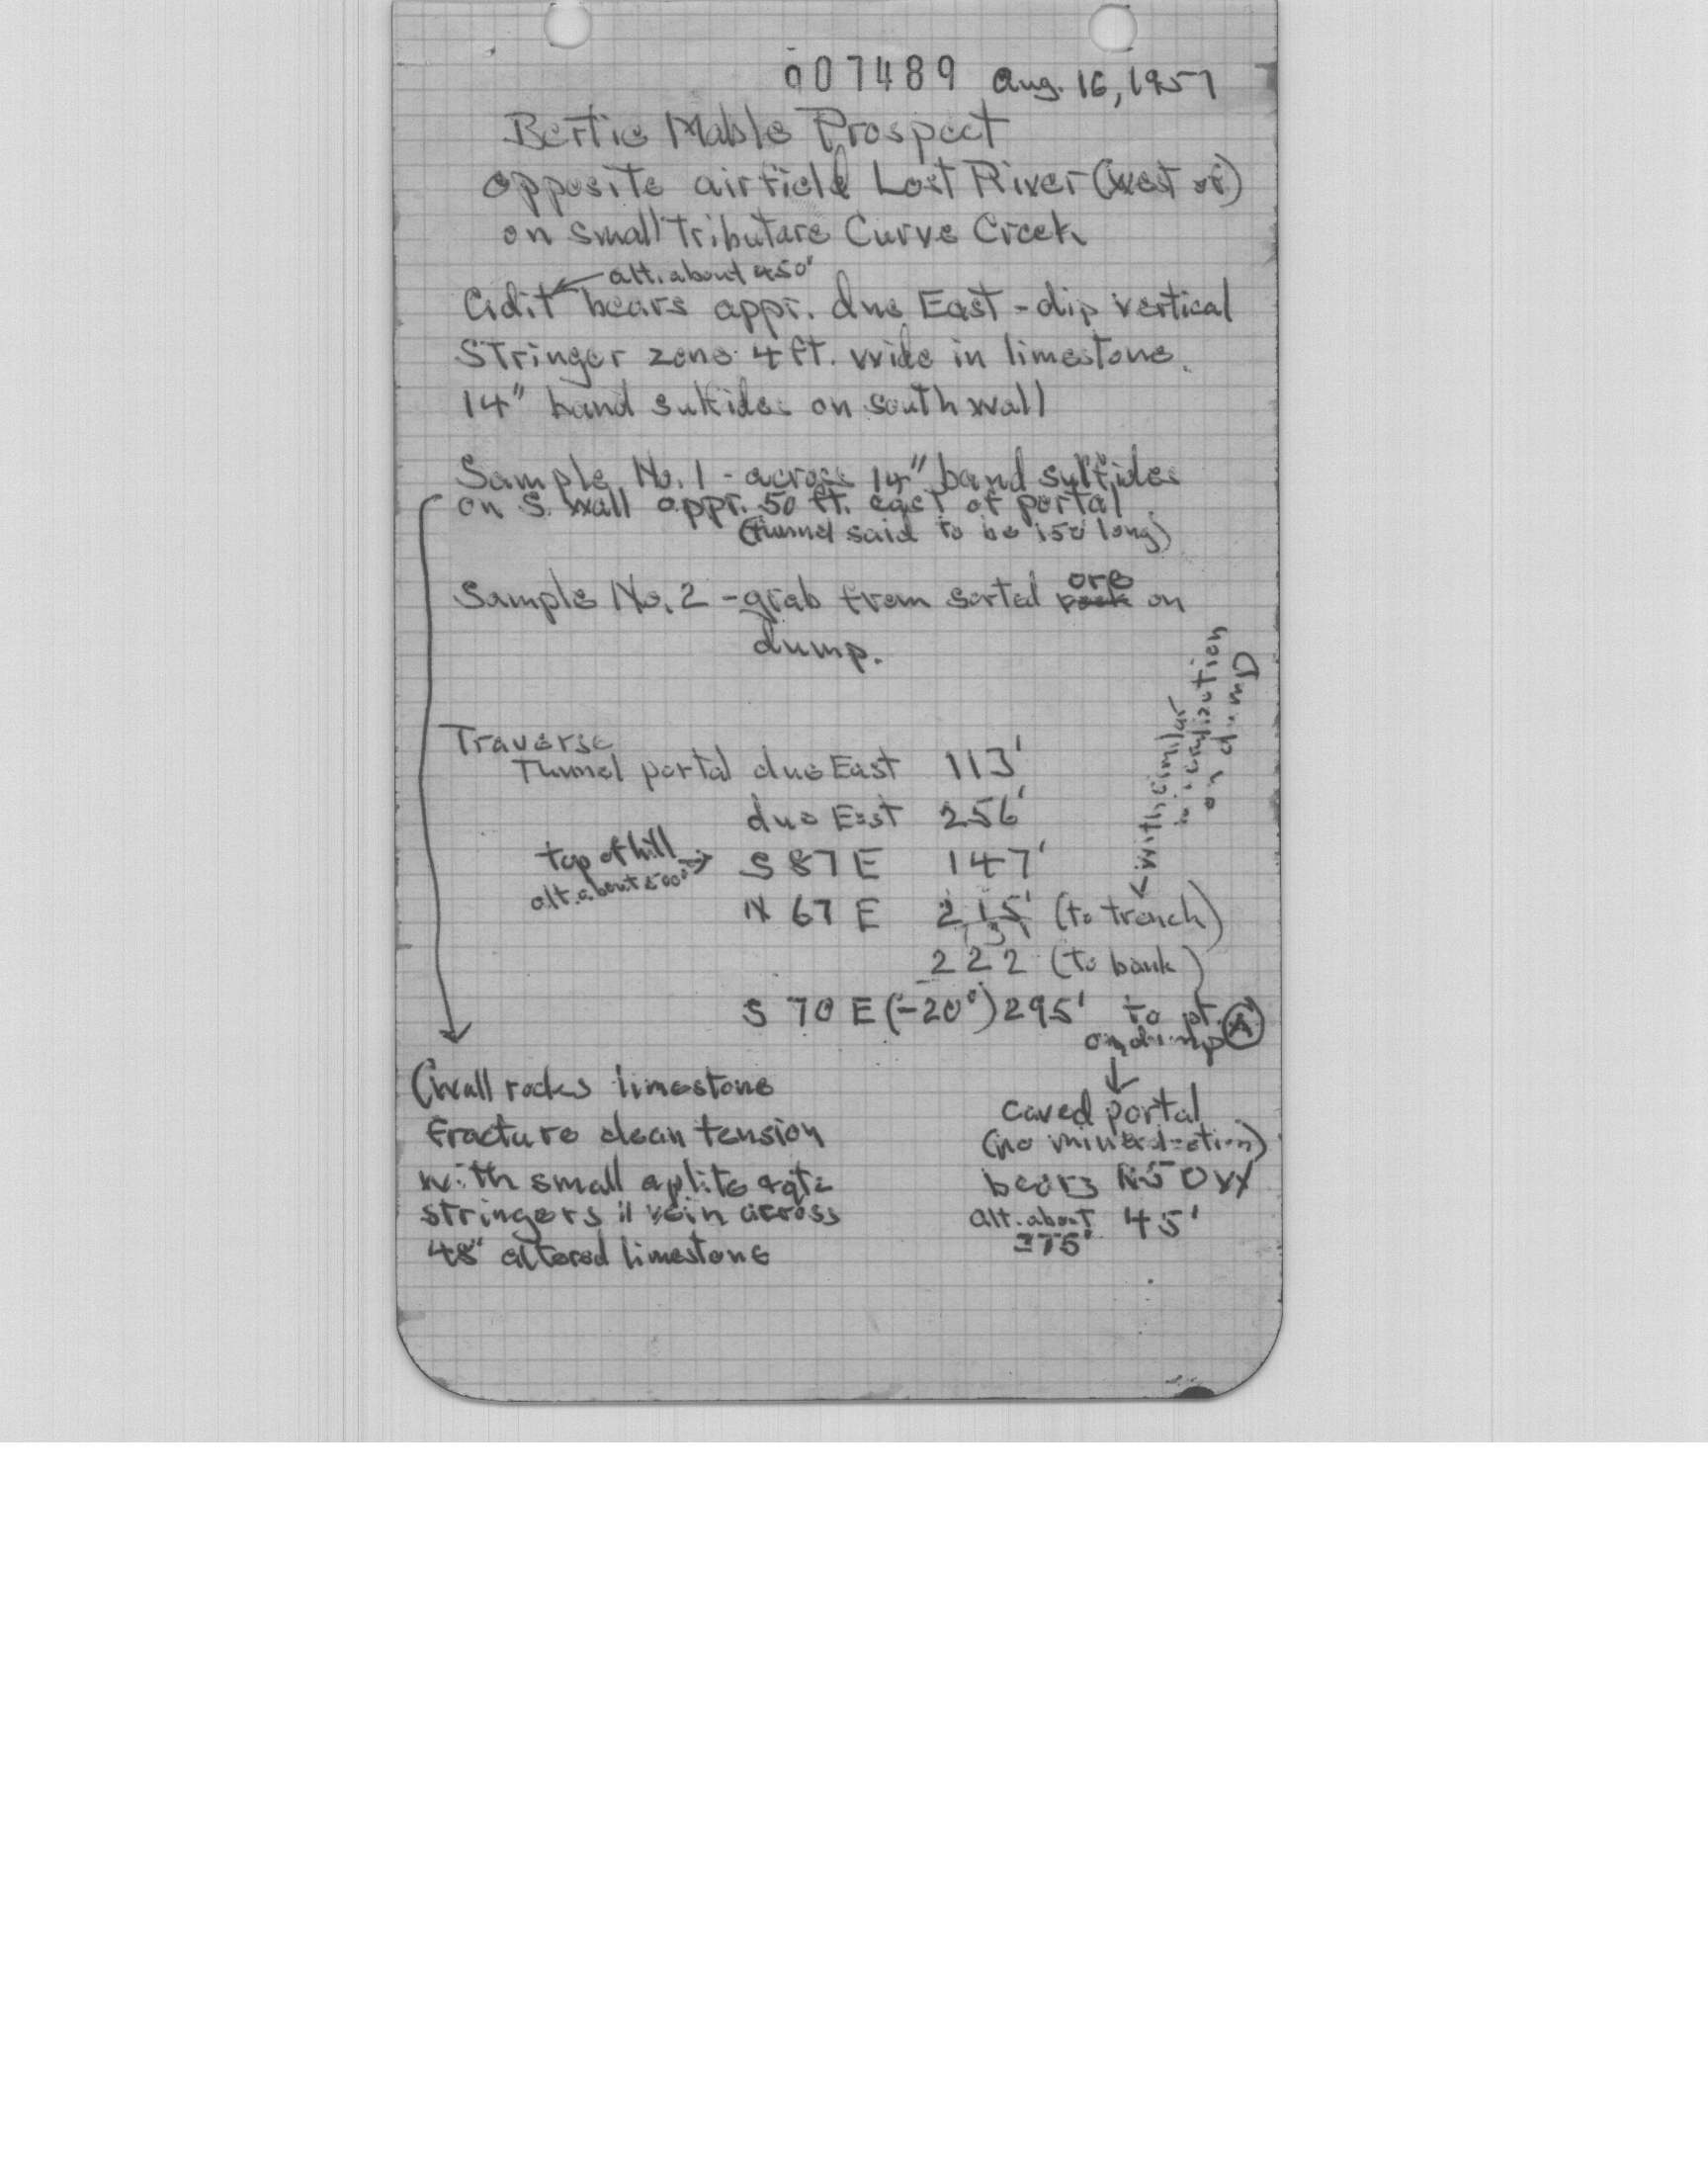 007489 Aug. 16, 1957
Bertie Mable Prospect
opposite airfield Lost River (West of)
on small Tributare Curve Creek
alt. about 450'
Adit bears appr. due East - dip vertical
Stringer zone 4 ft. wide in limestone.
14" band sulfides on south wall
Sample No. 1 - across 14" band sulfides
on S. wall appr. 50 ft. east of portal
(tunnel said to be 150' long)
Sample No. 2 - grab from sorted rock ore on
dump.
Traverse
Tunnel portal due East 113'
due East 256'
top of hill → S 87 E 147'
alt. about 500'
N 67 E 215' (to trench)
← with similar
mineralization
on dump
222 (to bank)
S 70 E (-20°) 295' to pt. A
on dump
(Wall rocks limestone
Fracture clean tension
with small aplite & qtz
stringers || vein across
48" altered limestone
caved portal
(no mineralization)
bears N 50 W
45'
alt. about
375'